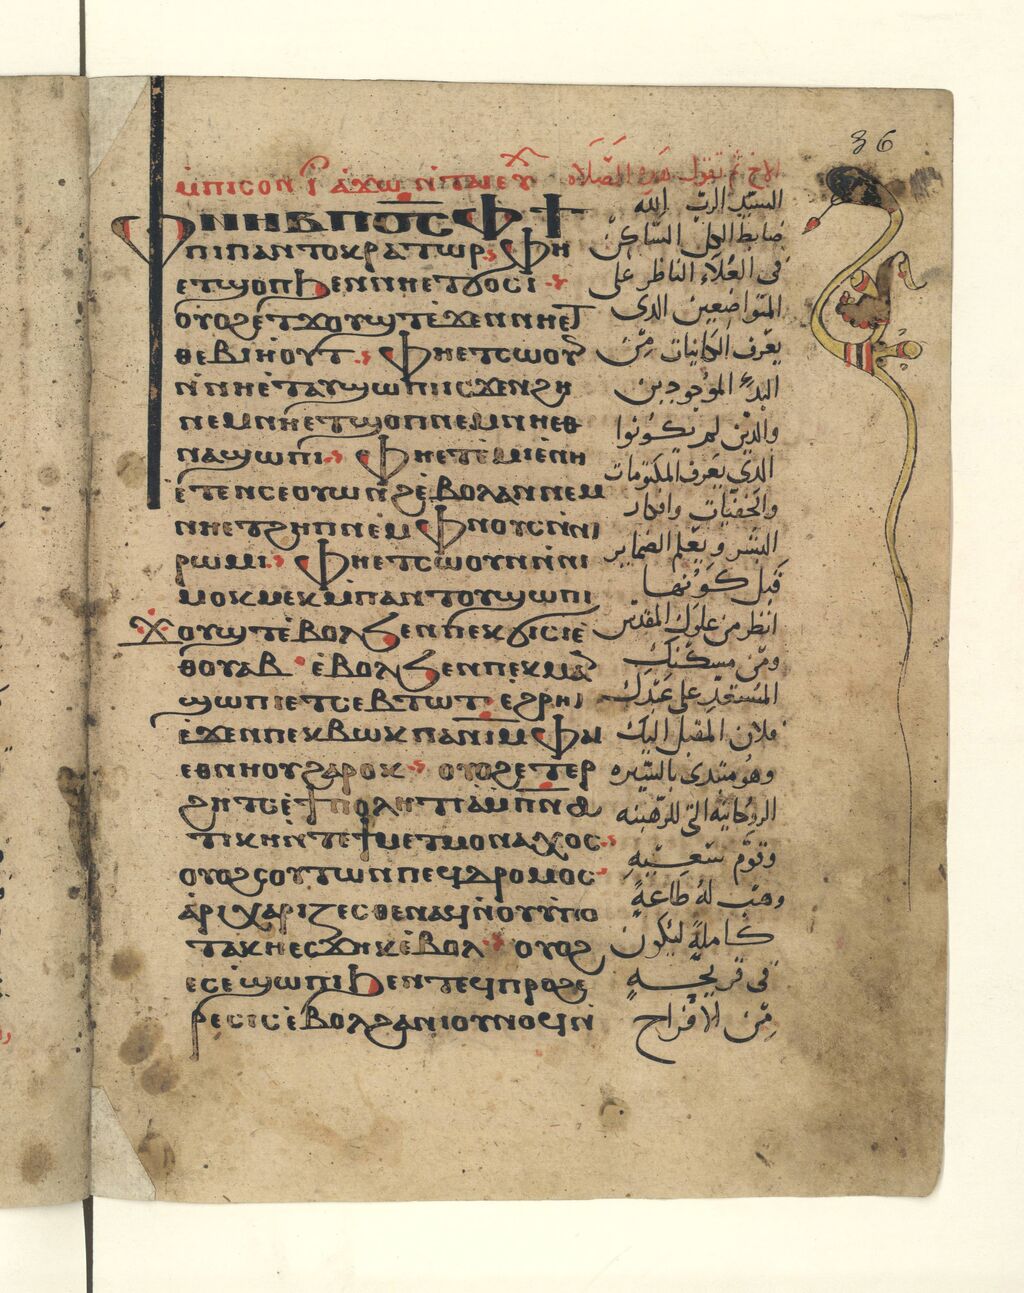 36
ⲙ̀ⲡⲓⲥⲟⲛ
ⲫⲛⲏⲃ ⲡⲟ̅ⲥ̅ ⲫϯ
ⲡⲓⲡⲁⲛⲧⲟⲕⲣⲁⲧⲱⲣ ⲫⲏ
ⲉⲧϣⲟⲡ ϧⲉⲛ ⲛⲏⲉⲧϭⲟⲥⲓ
ⲟⲩⲟϩ ⲉⲧϫⲟⲩϣⲧ ⲉϫⲉⲛ ⲛⲏⲉⲧ
ⲑⲉⲃⲓⲏⲟⲩⲧ ⲫⲏⲉⲧⲥⲱⲟⲩ
ⲛ̀ⲛⲏⲉ̀ⲧⲁⲩϣⲱⲡⲓ ⲓⲥϫⲉⲛ ϩⲏ
ⲛⲉⲙ ⲛⲏⲉⲧϣⲟⲡ ⲛⲉⲙ ⲛⲏⲉⲑ
ⲛⲁϣⲱⲡⲓ ⲫⲏⲉⲧⲉ̀ⲙⲓ ⲉ̀ⲛⲏ
ⲉ̀ⲧⲉ ⲛⲥⲉⲟⲩⲱⲛϩ ⲉ̀ⲃⲟⲗ ⲁⲛ ⲛⲉⲙ
ⲛⲏⲉⲧϩⲏⲡ ⲛⲉⲙ ⲫⲛⲟⲩⲥ ⲛ̀ⲛⲓ
ⲣⲱⲙⲓ ⲫⲏⲉⲧⲥⲱⲟⲩⲛ ⲛ̀ⲛⲓ
ⲙⲟⲕⲙⲉⲕ ⲙ̀ⲡⲁⲛⲧⲟⲩϣⲱⲡⲓ
ϫⲟⲩϣⲧ ⲉ̀ⲃⲟⲗϧⲉⲛ ⲡⲉⲕϭⲓⲥⲓ ⲉ̀
ⲑⲟⲩⲁⲃ ⲉ̀ⲃⲟⲗϧⲉⲛ ⲡⲉⲕⲙⲁ
ϣⲱⲡⲓ ⲉⲧⲥⲉⲃⲧⲱⲧ ⲉϩⲣⲏⲓ
ⲉ̀ϫⲉⲛ ⲡⲉⲕⲃⲱⲕ ⲡⲁⲛⲓⲙ ⲫⲁⲓ
ⲉⲑⲛⲏⲟⲩ ϩⲁⲣⲟⲕ ⲟⲩⲟϩ ⲉⲧⲉⲣ
ϩⲏⲧⲥ ⲉ̀ϯⲡⲟⲗⲏⲧⲓⲁ ⲙ̀ⲡ̅ⲛ̅ⲁ̅
ⲧⲓⲕⲏ ⲛ̀ⲧⲉ ϯⲙⲉⲧⲙⲟⲛⲁⲭⲟⲥ
ⲟⲩⲟϩ ⲥⲟⲩⲧⲱⲛ ⲡⲉϥⲇⲣⲟⲙⲟⲥ
ⲁ̀ⲣⲓⲭⲁⲣⲓⲍⲉⲥⲑⲉ ⲛⲁϥ ⲛ̀ⲟⲩⲩⲡⲟ
ⲧⲁⲕⲏ ⲉⲥϫⲏⲕ ⲉ̀ⲃⲟⲗ ⲟⲩⲟϩ
ⲉⲥⲉ̀ϣⲱⲡⲓ ϧⲉⲛ ⲧⲉϥⲡⲣⲟϩⲉ
ⲣⲉⲥⲓⲥ ⲉ̀ⲃⲟⲗϩⲁⲛ ⲓⲟⲩⲛⲟϥ ⲛ̀
الاخ ثم تقول هذه الصلاه
السيد الرب الله
ضابط الكل الساكن
فى العُلاء الناظر على
المتواضعين الدى
يعرف الكاينات مِن
البدْء الموجودين
والدين لم يكونوا
الدى يعرف المكتومات
والخفيات وافكار
البشر ويعلم الضماير
قبل كونها
انظر من علوك المقدس
ومن مسكنك
المستعد على عبدك
فلان المقبل اليك
وهو مبتدى بالسيره
الروحانيه التى للرهبنه
وقوّم سعيه
وهب له طاعةٍ
كاملةٍ ليكون
فى
من الافراح